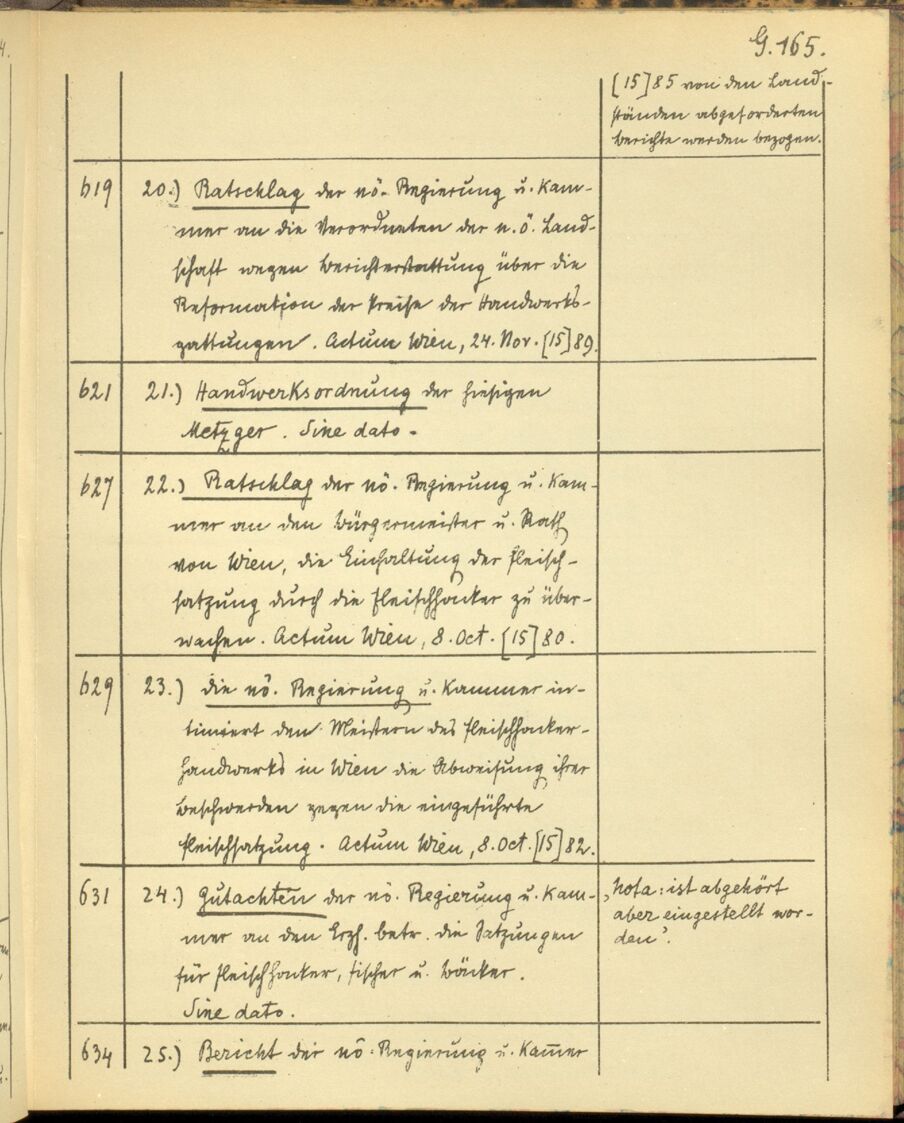 G. 165.
[15]85 von den Land-
ständen abgeforderten
Berichte werden bezogen.
619 20.) Ratschlag der nö. Regierung u. Kam-
mer an die Verordneten der n. ö. Land-
schaft wegen Berichterstattung über die
Reformation der Preise der Handwerks-
gattungen. Actum Wien, 24. Nov. [15]89.
621 21.) Handwerksordnung der hiesigen
Metzger. Sine dato.
627 22.) Ratschlag der nö. Regierung u. Kam-
mer an den Bürgermeister u. Rath
von Wien, die Einhaltung der Fleisch-
satzung durch die Fleischhacker zu über-
wachen. Actum Wien, 8. Oct. [15]80.
629 23.) die nö. Regierung u. Kammer in-
timiert den Meistern des Fleischhacker-
handwerks in Wien die Abweisung ihrer
Beschwerden gegen die eingeführte
Fleischsatzung. Actum Wien, 8. Oct. [15]82.
631 24.) Gutachten der nö. Regierung u. Kam-
mer an den Erzh. betr. die Satzungen
für Fleischhacker, Fischer u. Bäcker.
Sine dato.
„Nota: ist abgehört
aber eingestellt wor-
den".
634 25.) Bericht der nö. Regierung u. Kam̅er